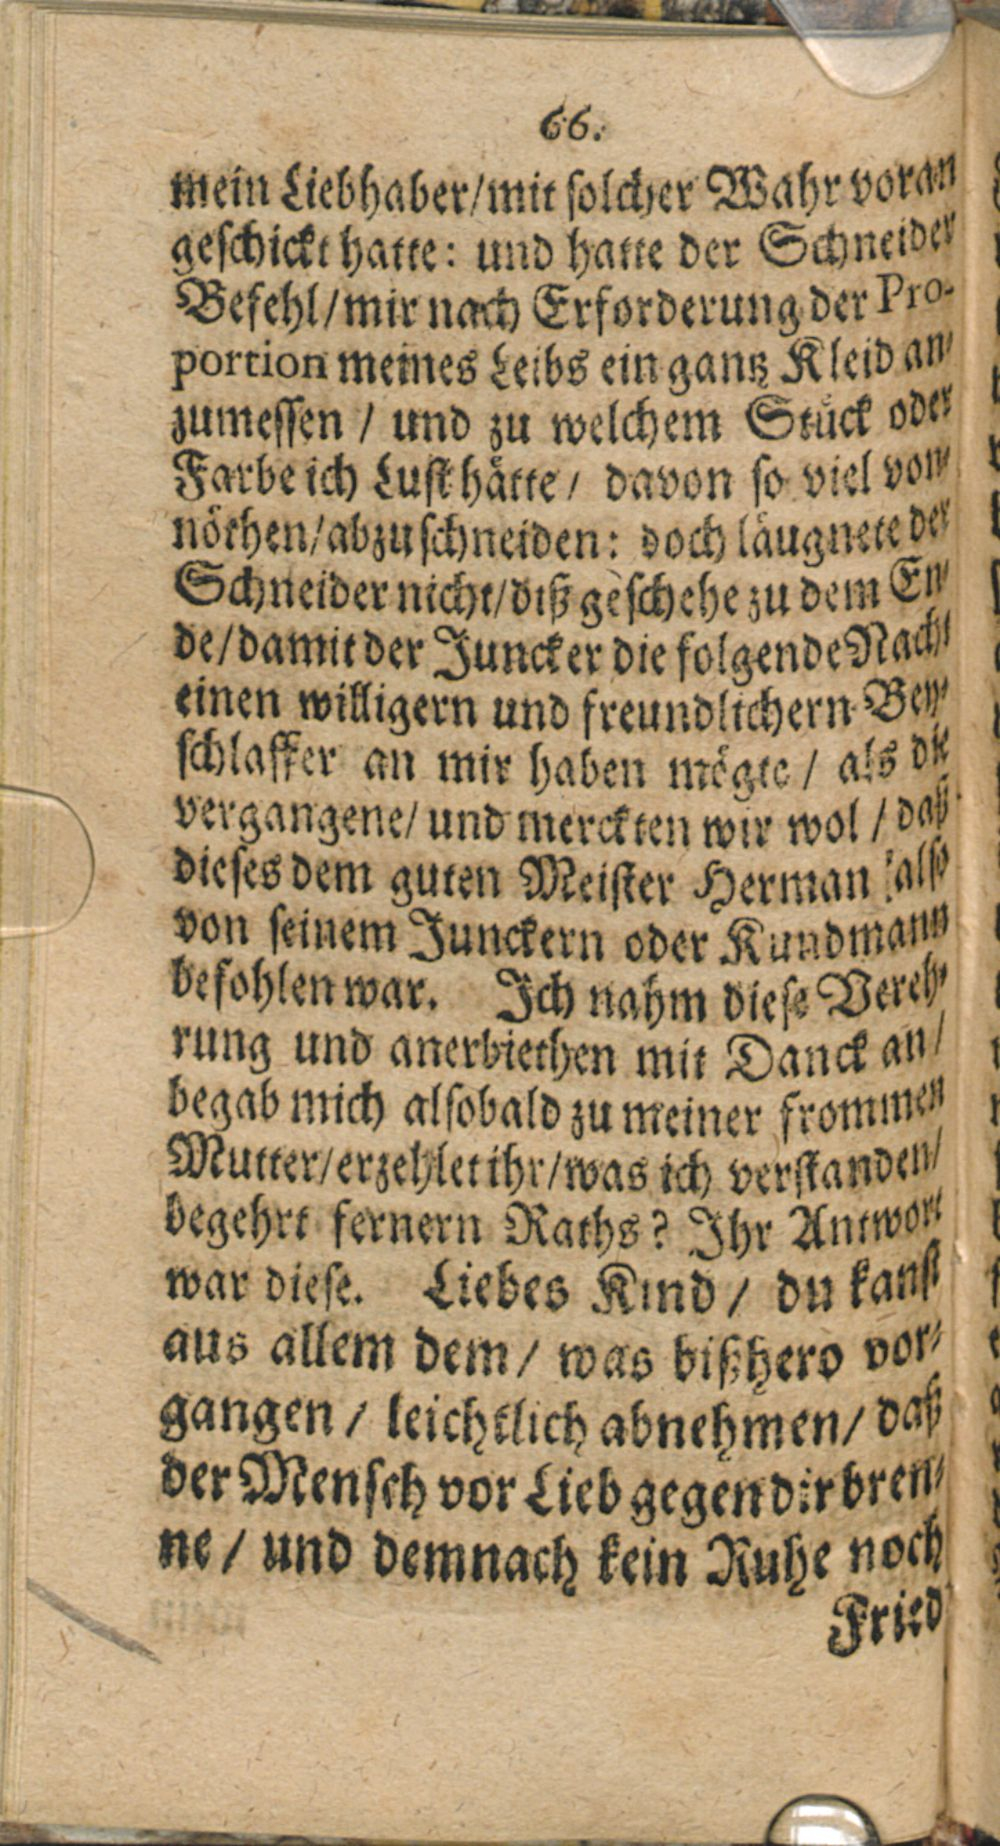 66.
mein Liebhaber/mit solcher Wahr voran
geschickt hatte: und hatte der Schneider
Befehl/mir nach Erforderung der Pro-
portion meines Leibs ein gantz Kleid an-
zumessen / und zu welchem Stück oder
Farbe ich Lust hätte / davon so viel von-
nöthen/abzuschneiden: doch läugnete der
Schneider nicht/diß geschehe zu dem En-
de/damit der Juncker die folgende Nacht
einen willigern und freundlichern Bey-
schlaffer an mir haben mögte / als die
vergangene/ und merckten wir wol / daß
dieses dem guten Meister Herman also
von seinem Junckern oder Kundmann
befohlen war. Ich nahm diese Vereh-
rung und anerbiethen mit Danck an/
begab mich alsobald zu meiner frommen
Mutter/erzehlet ihr/was ich verstanden/
begehrt fernern Raths? Ihr Antwort
war diese. Liebes Kind / du kanst
aus allem dem / was bißhero vor-
gangen / leichtlich abnehmen/ daß
der Mensch vor Lieb gegen dir bren-
ne / und demnach kein Ruhe noch
Fried